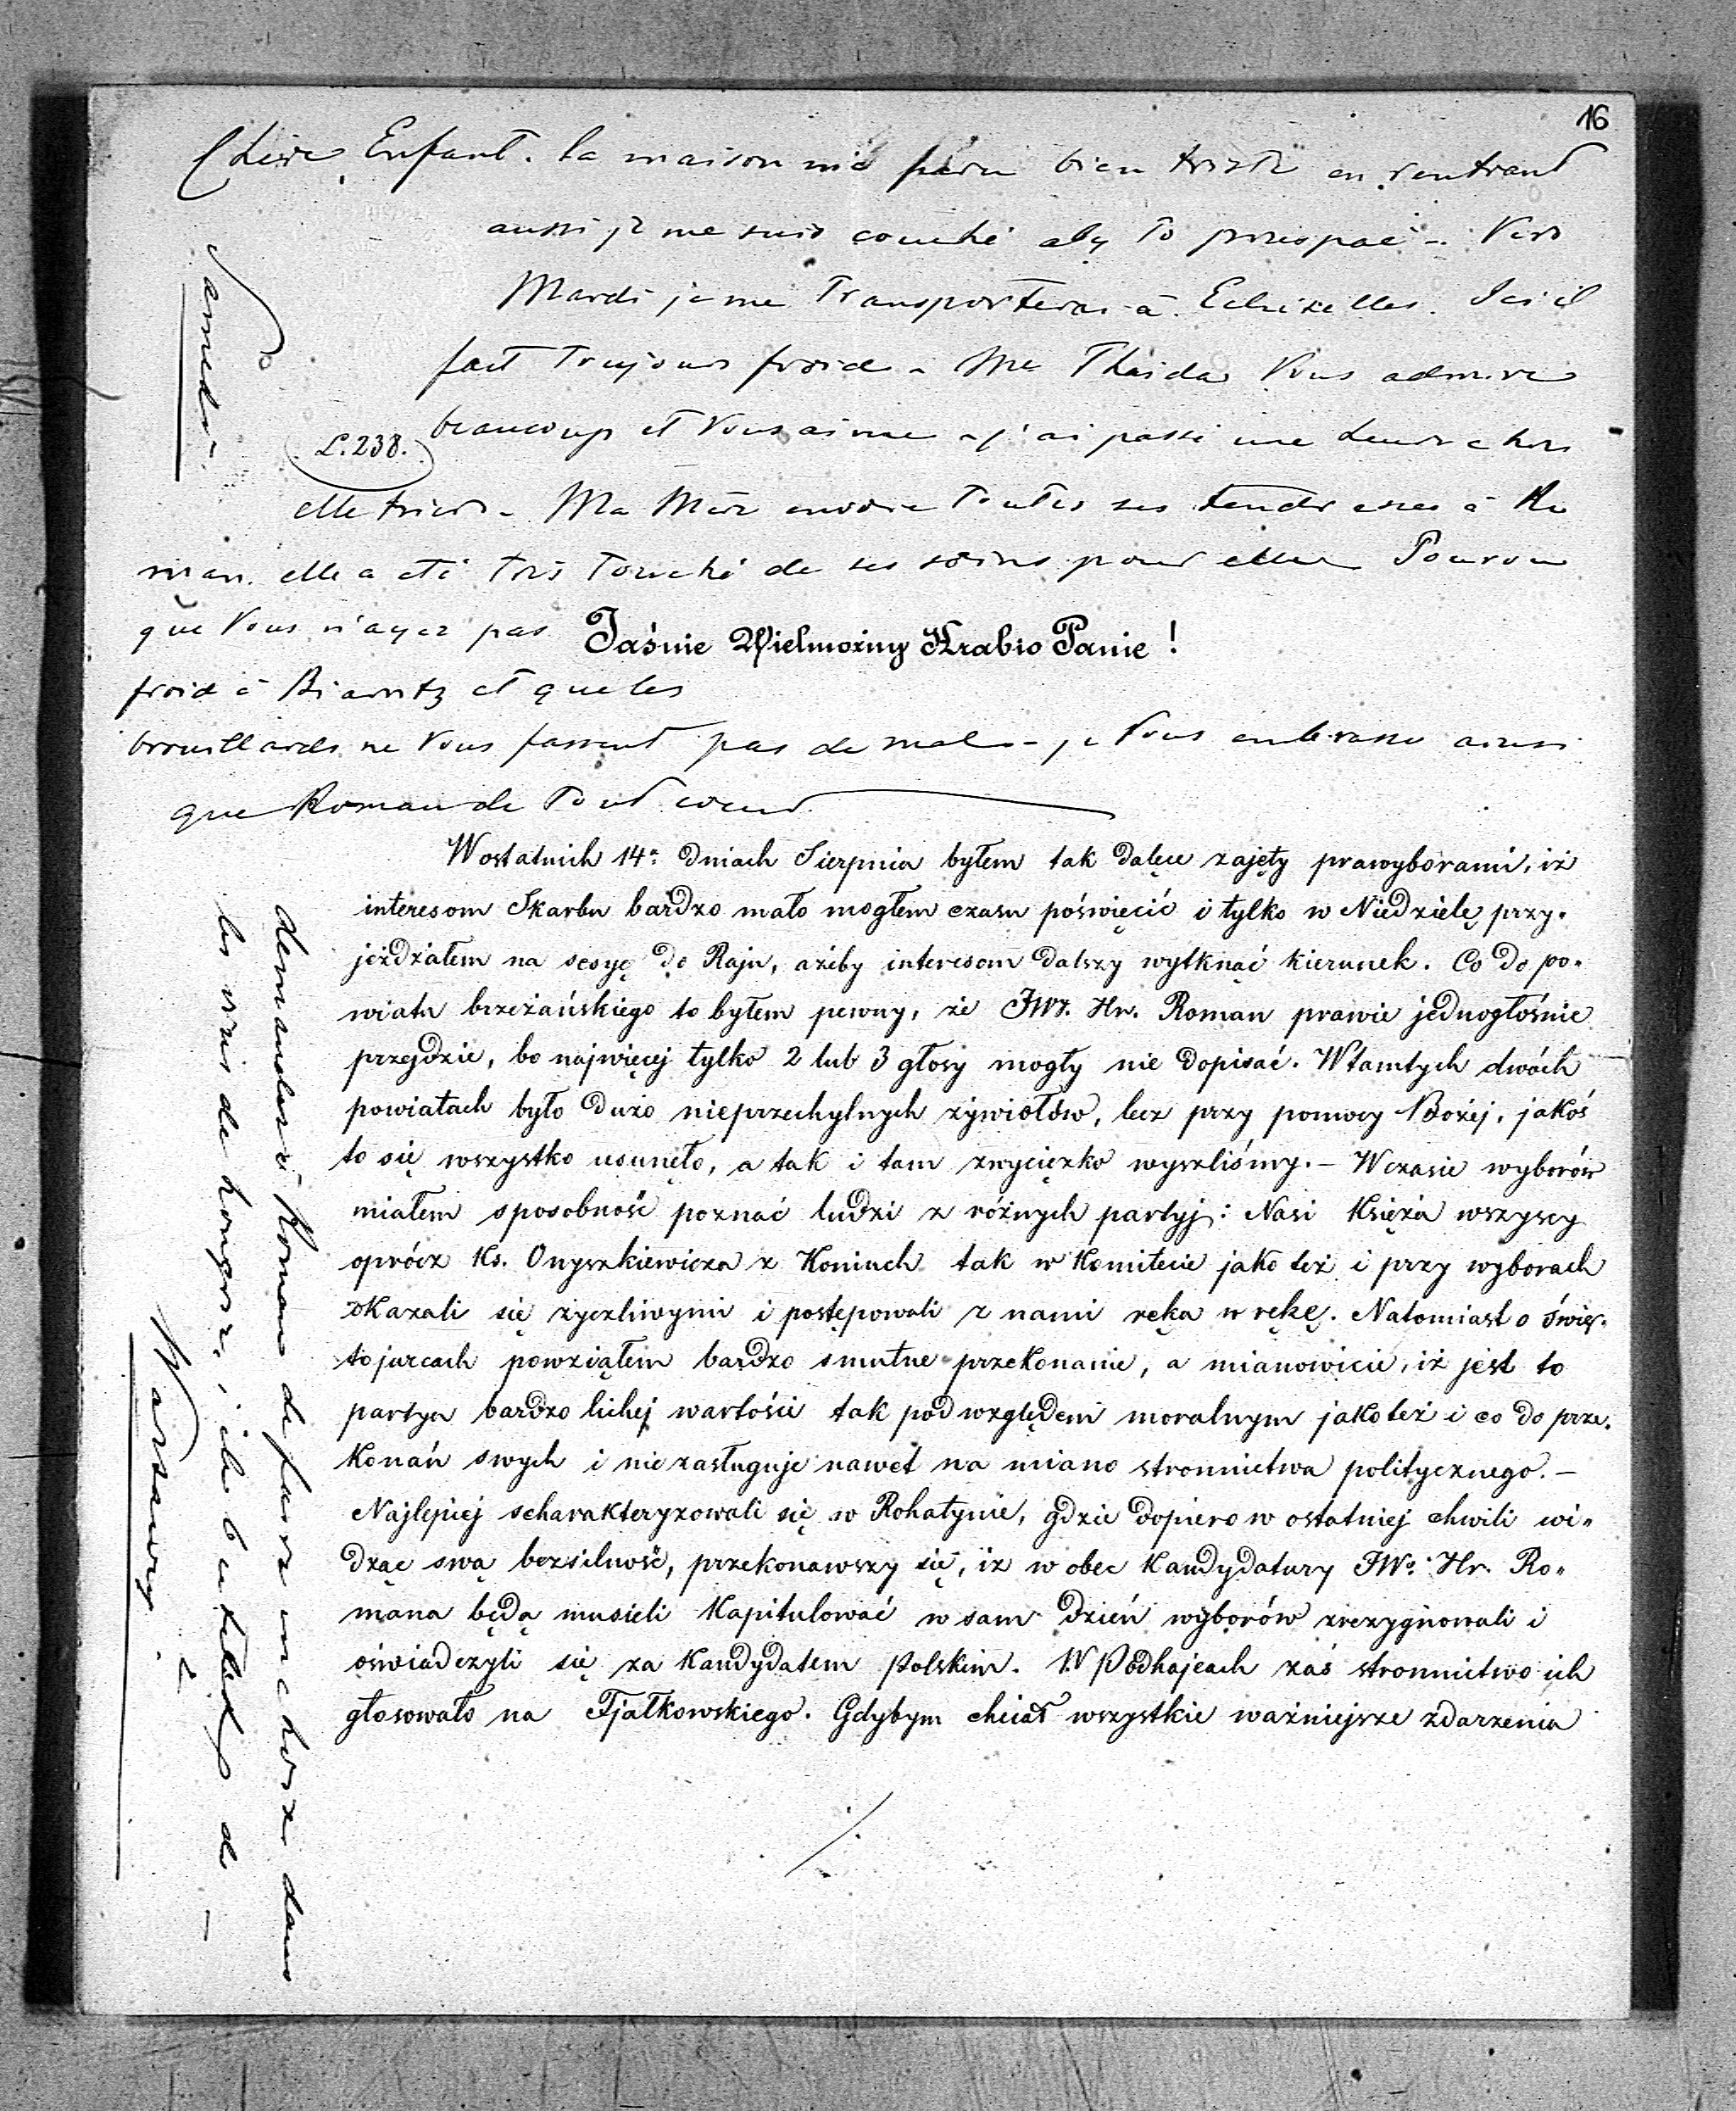 16
Chère Enfant. la maison m'a paru bien triste en rentrant
aussi je me suis couché aby to przespać - Vers
Mardi je me transporterai à Ici il
fait toujours froid - Me Thaida Vous admire
beaucoup et Vous aime - j'ai passé une heure chez
L: 238.
elle hier - Ma Mère envoie toutes ses tendresses à Ro
man. elle a été très touché de ses soins pour elle Pourvu
que Vous n'ayez pas
Jaśnie Wielmożny Hrabio Panie!
froid à Biarritz et que les
brouillards ne Vous fassent pas de mal - je Vous embrasse ainsi
que Roman de tout coeur
Samedi
W ostatnich 14n: dniach Sierpnia byłem tak dalece zajęty prawyborami, iż
interesom Skarbu bardzo mało mogłem czasu poświęcić i tylko w Niedzielę przy-
jeżdżałem na sesyę do Raju, ażeby interesom dalszy wytknąć kierunek. Co do po-
wiatu brzeżańskiego to byłem pewny, że JWz. Hr. Roman prawie jednogłośnie
przejdzie, bo najwięcej tylko 2 lub 3 głosy mogły nie dopisać. W tamtych dwóch
powiatach było dużo nieprzychylnych żywiołów, lecz przy pomocy Bożej, jakoś
to się wszystko usunęło, a tak i tam zwycięzko wyszliśmy. - W czasie wyborów
miałem sposobność poznać ludzi z różnych partyj: Nasi Księża wszyscy
oprócz Ks. Onyszkiewicza z Koniuch tak w Komitecie jako też i przy wyborach
okazali się życzliwymi i postępowali z nami ręka w rękę. Natomiast o święt-
tojurcach powziąłem bardzo smutne przekonanie, a mianowicie, iż jest to
partya bardzo lichej wartości tak pod względem moralnym jako też i co do prze-
konań swych i nie zasługuje nawet na miano stronnictwa politycznego. -
Najlepiej scharakteryzowali się w Rohatynie, gdzie dopiero w ostatniej chwili wi-
dząc swą bezsilność, przekonawszy się, iż w obec Kandydatury JWo. Hr. Ro-
mana będą musieli Kapitulować w sam dzień wyborów zrezygnowali i
oświadczyli się za Kandydatem polskim. W Podhajcach zaś stronnictwo ich
głosowało na Fjałkowskiego. Gdybym chciał wszystkie ważniejsze zdarzenia
./.
demandez à Roman de faire me choix dans
les vins de hongrie, de
Warszawy.